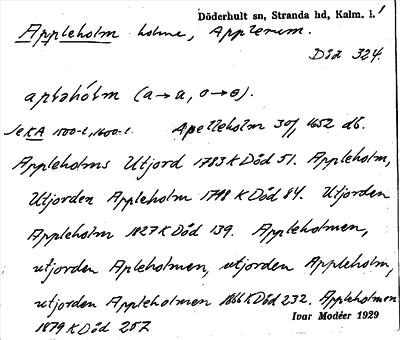 Döderhult sn, Stranda hd, Kalm. l.
Appleholm holme, Applerum.
Död 324.
aplahólm (a→a, o→ɵ).
Se KA 1500-t, 1600-t. Apelleholm 30/1 1652 db.
Appleholms Utjord 1783 K Död 51. Appleholm,
Utjorden Appleholm 1798 K Död 84. Utjorden
Appleholm 1827 K Död 139. Appleholmen,
utjorden Apleholmen, utjorden Appleholm,
utjorden Appleholmen 1866 K Död 232. Appleholmen
1879 K Död 257
Ivar Modéer 1929